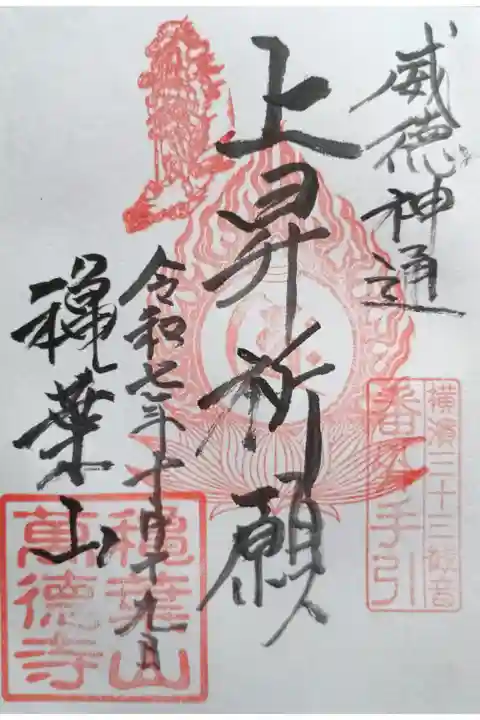 威徳神通
上昇祈願
令和七年十月十九日
穐葉山
横濱三十三観音
番外手引
穐葉山
萬德寺